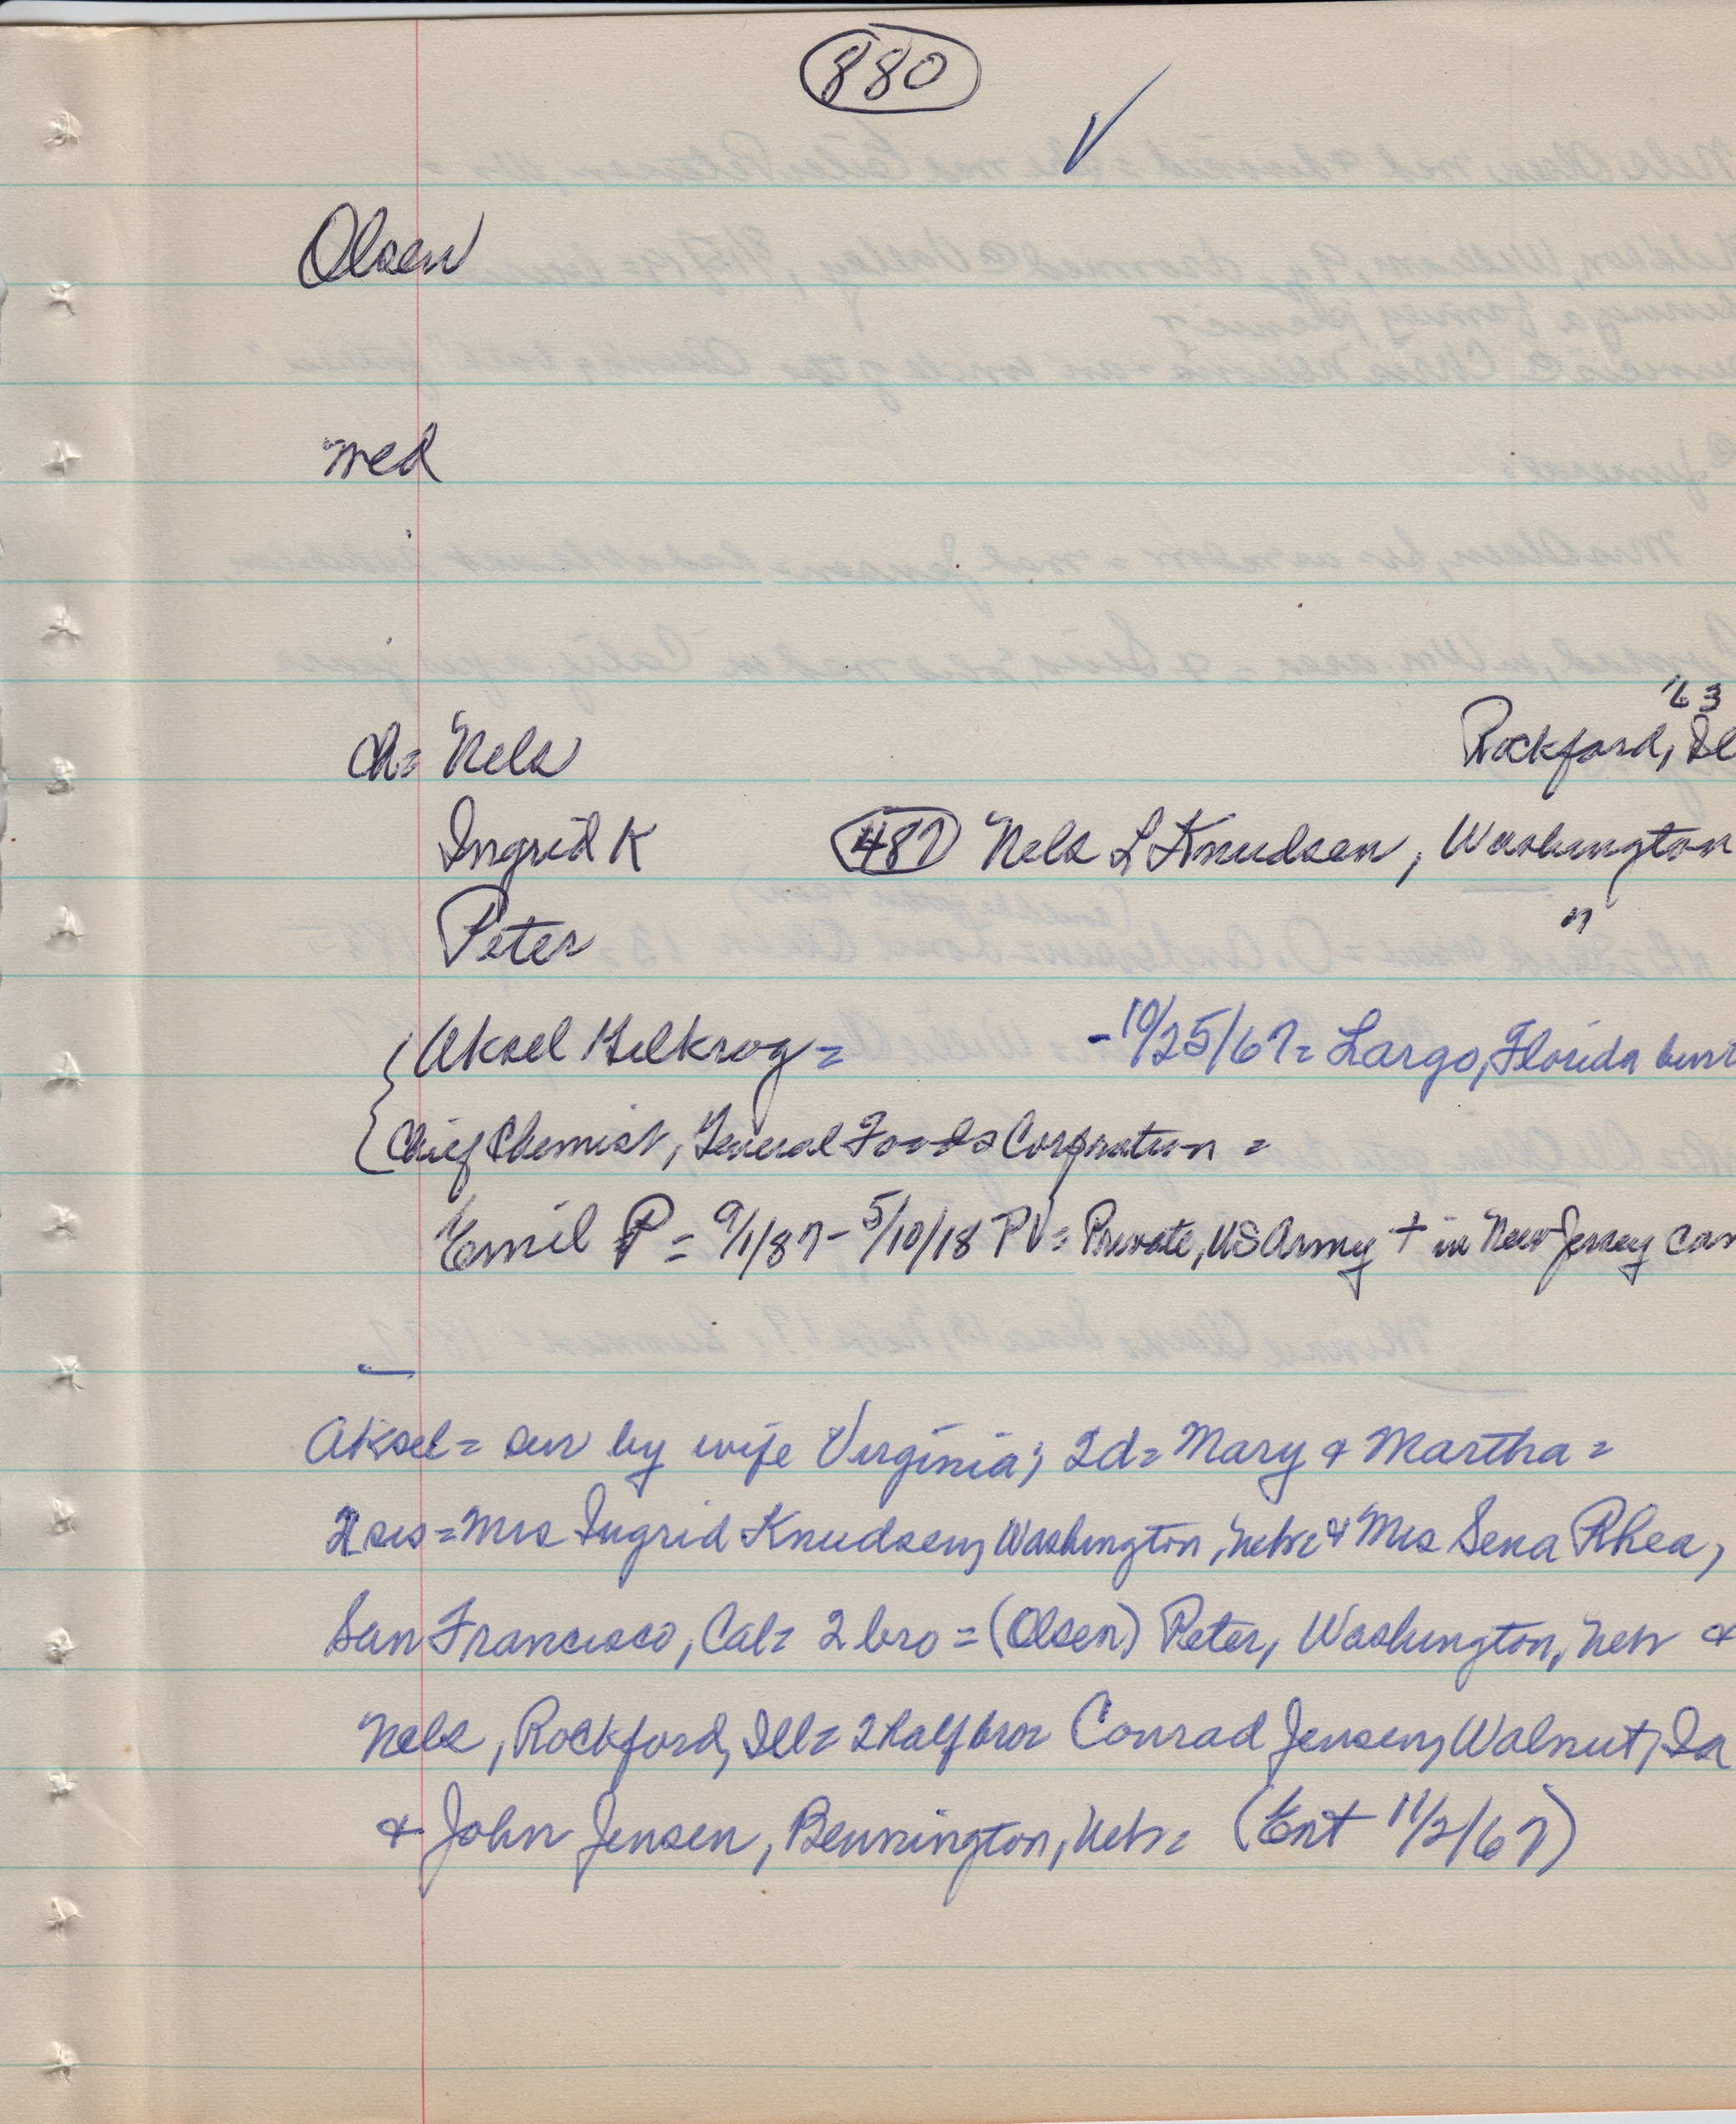 880 ✓
Olsen
med
'63
ch= Nels Rockford, Il
Ingrid K 487 Nels L Knudsen, Washington
Peter "
Aksel Helkrog= -10/25/67= Largo, Florida
Chief Chemist, General Foods Corporation =
Emil P = 9/1/87- 5/10/18 PV= Private, US Army + in New Jersey
Aksel= sur by wife Virginia; 2d= Mary & Martha=
2 sis=Mrs Ingrid Knudsen, Washington, Nebr & Mrs Sena Rhea,
San Francisco, Cal= 2 bro = (Olsen) Peter, Washington, Nebr &
Nels, Rockford, Ill= 2 half bro= Conrad Jensen, Walnut, Ia
& John Jensen, Bennington, Nebr= (Ent 11/2/67)